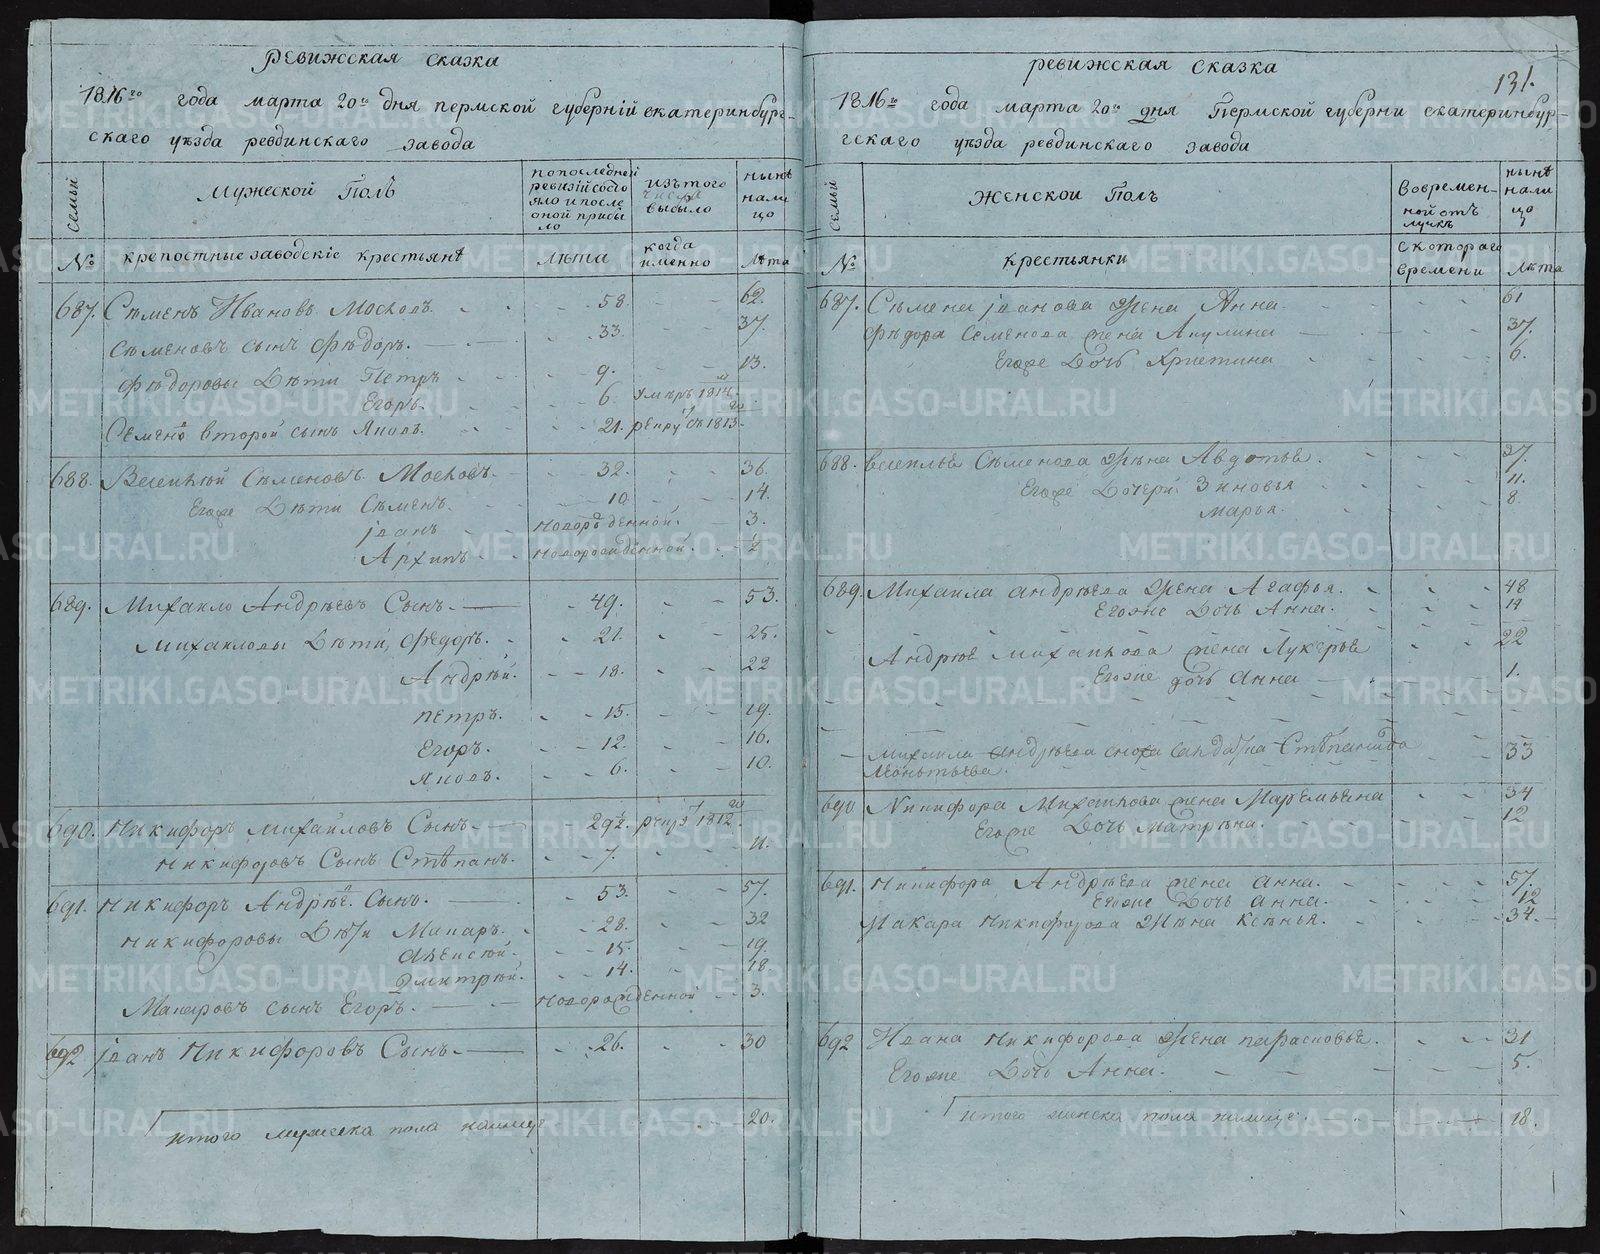 Ревижская сказка
1816го года марта 20го дня пермской губернiй екатеринбург-
скаго уѣзда ревдинскаго завода
Семьи
Мужеской Полъ
по последней ревизiй состояло и после оной прибыло
изъ того числа выбыло
нынѣ налицо
№
крепостные заводскiе крестьянѣ
лѣта
когда именно
Лѣта
687. Сѣменъ Ивановъ Московъ. 58. 62.
Сѣменовъ сынъ Фѣдоръ. 33. 37.
Фѣдоровы Дѣти Петръ 9. 13.
Егоръ. 6. умѣръ 1814
Семена второй сынъ Яковъ. 21. рекру 1813
688. Василiй Сѣменовъ Московъ. 32. 36.
Егоже Дѣти Сѣменъ. 10. 14.
Iванъ новорожденной. 3.
Архипъ новорожденной. ½
689. Михаило Андрѣевъ Сынъ. 49. 53.
Михаиловы Дѣти, Фѣдоръ. 21. 25.
Андрѣй. 18. 22
Петръ. 15. 19.
Егоръ. 12. 16.
Яковъ. 6. 10.
690. Никифоръ Михайловъ Сынъ 29½. рекру 1812
Никифоровъ Сынъ Стѣпанъ. 7. 11.
691. Никифоръ Андрѣе. Сынъ. 53. 57.
Никифоровы Дѣти Макаръ. 28. 32
Алѣксѣй. 15. 19.
Дмитрѣй. 14. 18.
Макаровъ сынъ Егоръ. новорожденной 3.
692 Iванъ Никифоровъ Сынъ. 26. 30
итого мужеска пола налицо 20.
131.
ревижская сказка
1816го года марта 20го дня Пермской губерни екатеринбур-
гскаго уѣзда ревдинскаго завода
Семьи
Женской Полъ
во времен-
ной отъ
лучкѣ
нынѣ налицо
№
крестьянки
с котораго
времени
Лѣта
687. Сѣмена Iванова Жена Анна. 61
Фѣдора Семенова жена Акулина 37.
Егоже Дочь Христина 6.
688. Василья Сѣменова Жѣна Авдотья. 37.
Егоже Дочери Зиновья 11.
Марья. 8.
689. Михаила Андрѣева Жена Агафья. 48
Егоже Дочь Анна. 14
Андрѣя Михайлова жена Лукерья 22
Егоже дочь Анна 1.
Михаила Андрѣева сноха Стѣпанида 33
Леонтьева.
690 Никифора Михайлова жена Маремьяна 34
Егоже Дочь Матрѣна. 12
691. Никифора Андрѣева жена Анна. 57.
Егоже Дочь Анна. 12
Макара Никифорова Жѣна Ксѣнья. 34.
692 Ивана Никифорова Жена парасковья. 31
Егоже Дочь Анна. 5.
итого женска пола налицо: 18.
METRIKI.GASO-URAL.RU